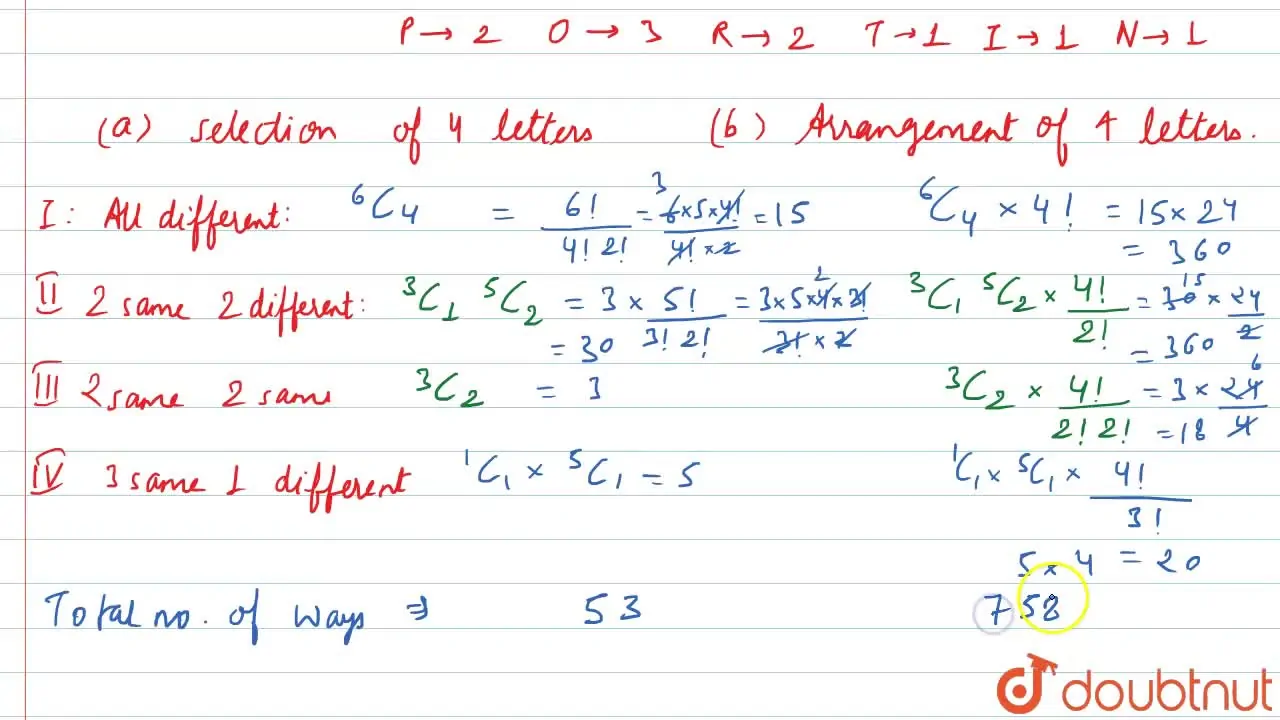 P → 2 O → 3 R → 2 T → 1 I → 1 N → 1
(a) selection of 4 letters (b) Arrangement of 4 letters.
I : All different: ⁶C₄ = 6!/4! 2! = 6×5×4!/4! × 2 = 15 ⁶C₄ × 4! = 15 × 24
3
= 360
II 2 same 2 different: ³C₁ ⁵C₂ = 3 × 5!/3! 2! = 3×5×4×3!/3! × 2 ³C₁ ⁵C₂ × 4!/2! = 30 × 24/2
2 15
= 30 = 360
III 2 same 2 same ³C₂ = 3 ³C₂ × 4!/2! 2! = 3 × 24/4
6
= 18
IV 3 same 1 different ¹C₁ × ⁵C₁ = 5 ¹C₁ × ⁵C₁ × 4!/3!
5 × 4 = 20
Total no. of ways ⇒ 53 758
doubtnut